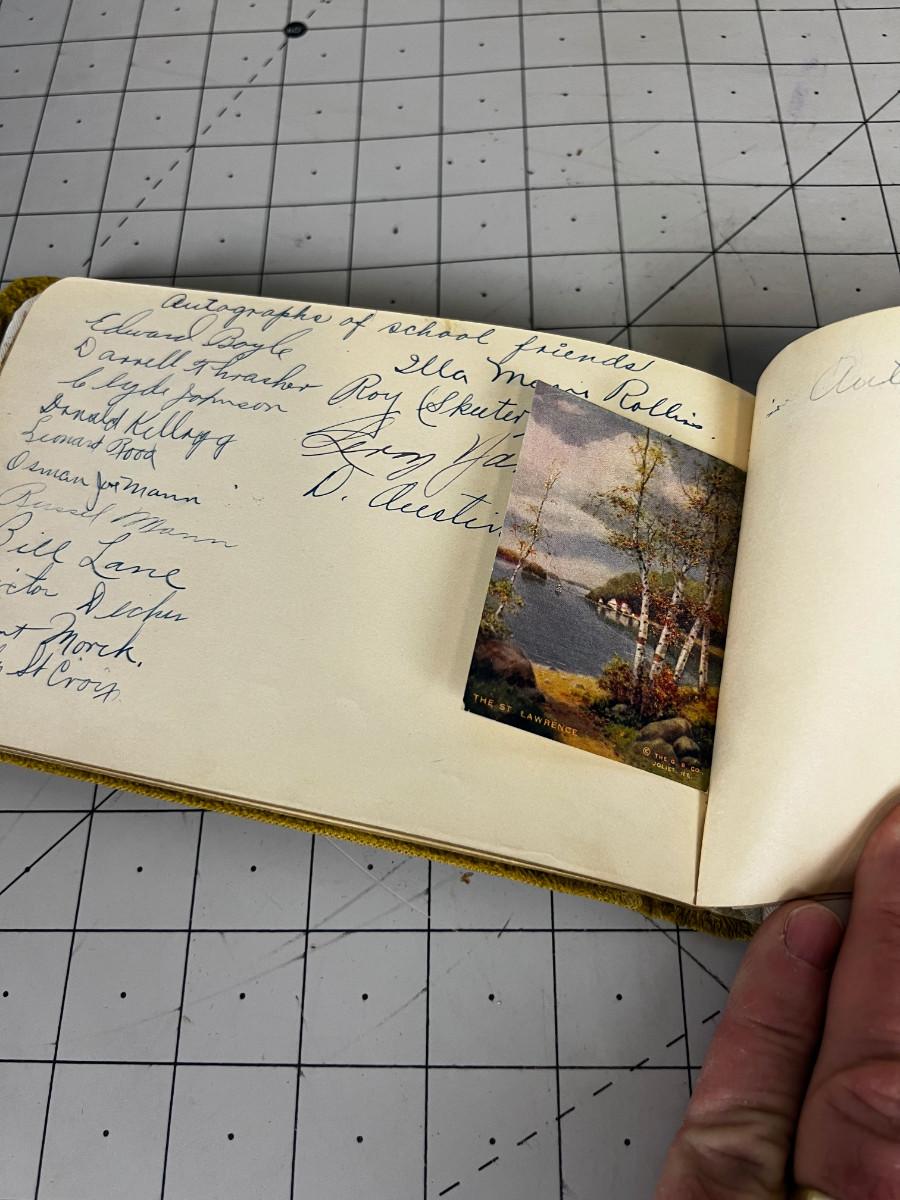 Autographs of school friends
Edward Boyle
Darrell Thrasher
Clyde Johnson
Donald Kellogg
Leonard Rood
Osman Joe Mann
Russel Mann
Bill Lane
Decker
Morck.
St Croix
Illa Marie Rollins.
Roy (Skeeter
D. Austin
THE ST LAWRENCE
© THE G. B. CO.
JOLIET. ILL.